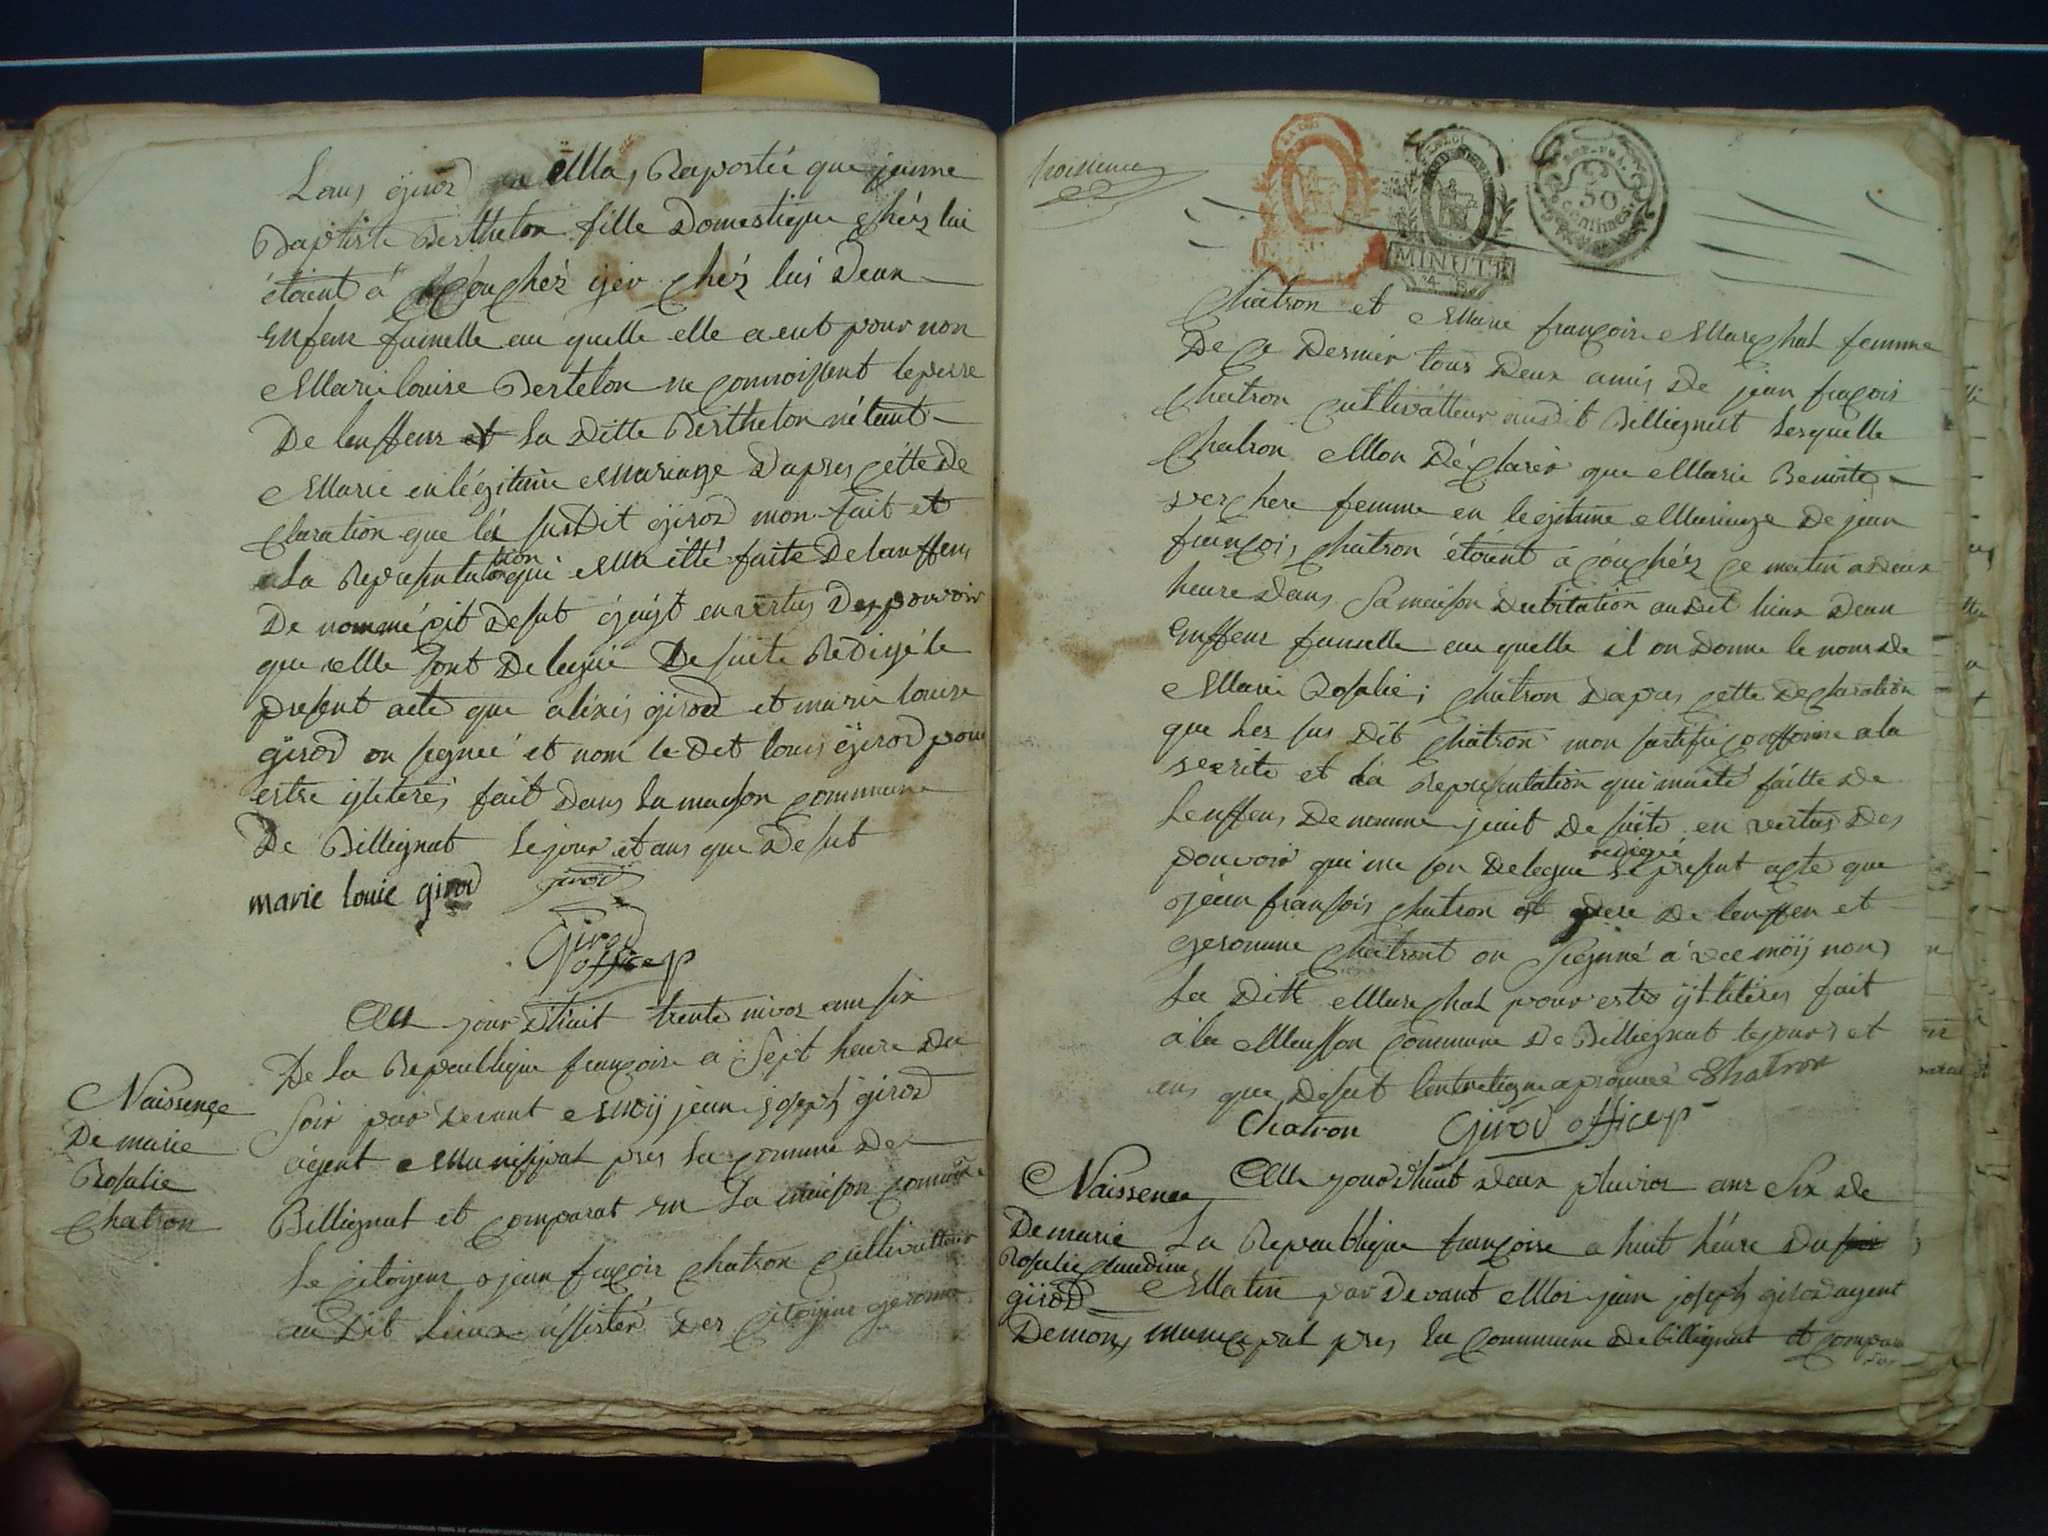 Louis gyrod a Ma, Raportée que jeanne
Baptiste Berthelon fille Domestique chéz lui
étoient á accouchéz yer chéz lui Deun
enfent fumelle au quelle elle a eut pour non
Marie louise Bertelon ne connoissent le perre
De lenffent et la ditte Berthelon nétant
Marie en légitime Mariage Dapres cétte De
claration que lé susdit gyrod mon fait et
La Representation qui Ma été faite De lanffens
De nommé
que elle sont Delegué De suite Redigé le
present acte que alexis girod et marie louise
gyrod on segneé et nom le dit louis gyrod pour
estre ylleteres fait Dans La maison commune
De Billiegnat le jour et ans que Desut
marie louie girod girod
Girod
officep
Au jour d'huit trente nivos ans six
De La Republique françoise a Sept heure Du
Soir par devant Moÿ jean joseph girod
agent Municipal pres la commune De
Billiegnat et comparat en la maison commune
Le citoyens jean façois chatron cultivatteur
au dit lieux assistér des citoyens gerome
Naissençe
De marie
Rosalie
Chatron
troisieme
MINUTE
REP. FRA
50
centimes
MINUTE
Chatron et Marie françoise Marechal femme
De ce Dernier tous Deux amis De jean façois
Chatron cultivatteur audit Billiegnat Lesquelle
Chatron Mon Déclarér que Marie Benoite
verchere femme en legitime Mariage De jean
françois chatron étoient á couchéz ce matin a deux
heure Dans Sa maison Dabitation audit lieux Deun
enffens fumelle au quelle il on donne le nom de
Marie Rosalie; chatron Dapres cette Declaration
que les sus Dit chatron mon sertifie conffoirme a la
verite et la Representation qui maété faitte De
lenffens De nomme jait De suite en vertus Des
pouvoir qui me son Delegue redigé le present acte que
jean fransois chatron et pere De lenffen et
geromme chatront on Siegnné á vec moÿ non
La Ditte Marechal pour estre ylleteres fait
á la Meusson commune De Billiegnat le jour et
ans que Desut lentreligne aprouvé Chatron
Chatron Girod officep
Au jourd'huit deux pluvios ans Six de
La Republique françoise a huit héure Du soir
Matin par Devant Moi jean joseph girod agent
municipal pres La commune De billiegnat et compar
Naissence
De marie
Rosalie claudine
girod
Demons